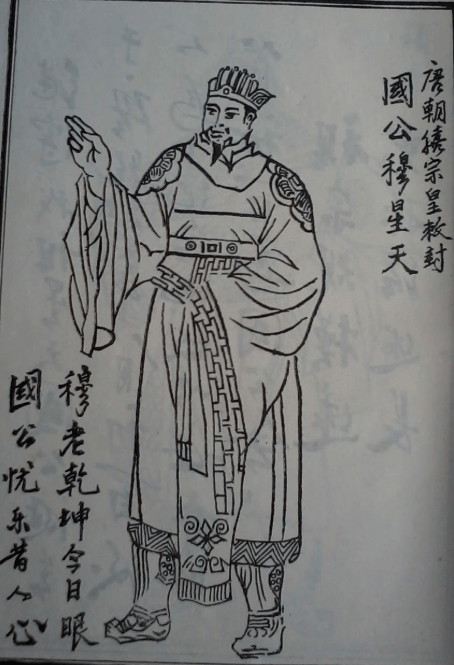 唐朝僖宗皇敕封
國公穆星天
穆老乾坤今日眼
國公忧乐昔人心